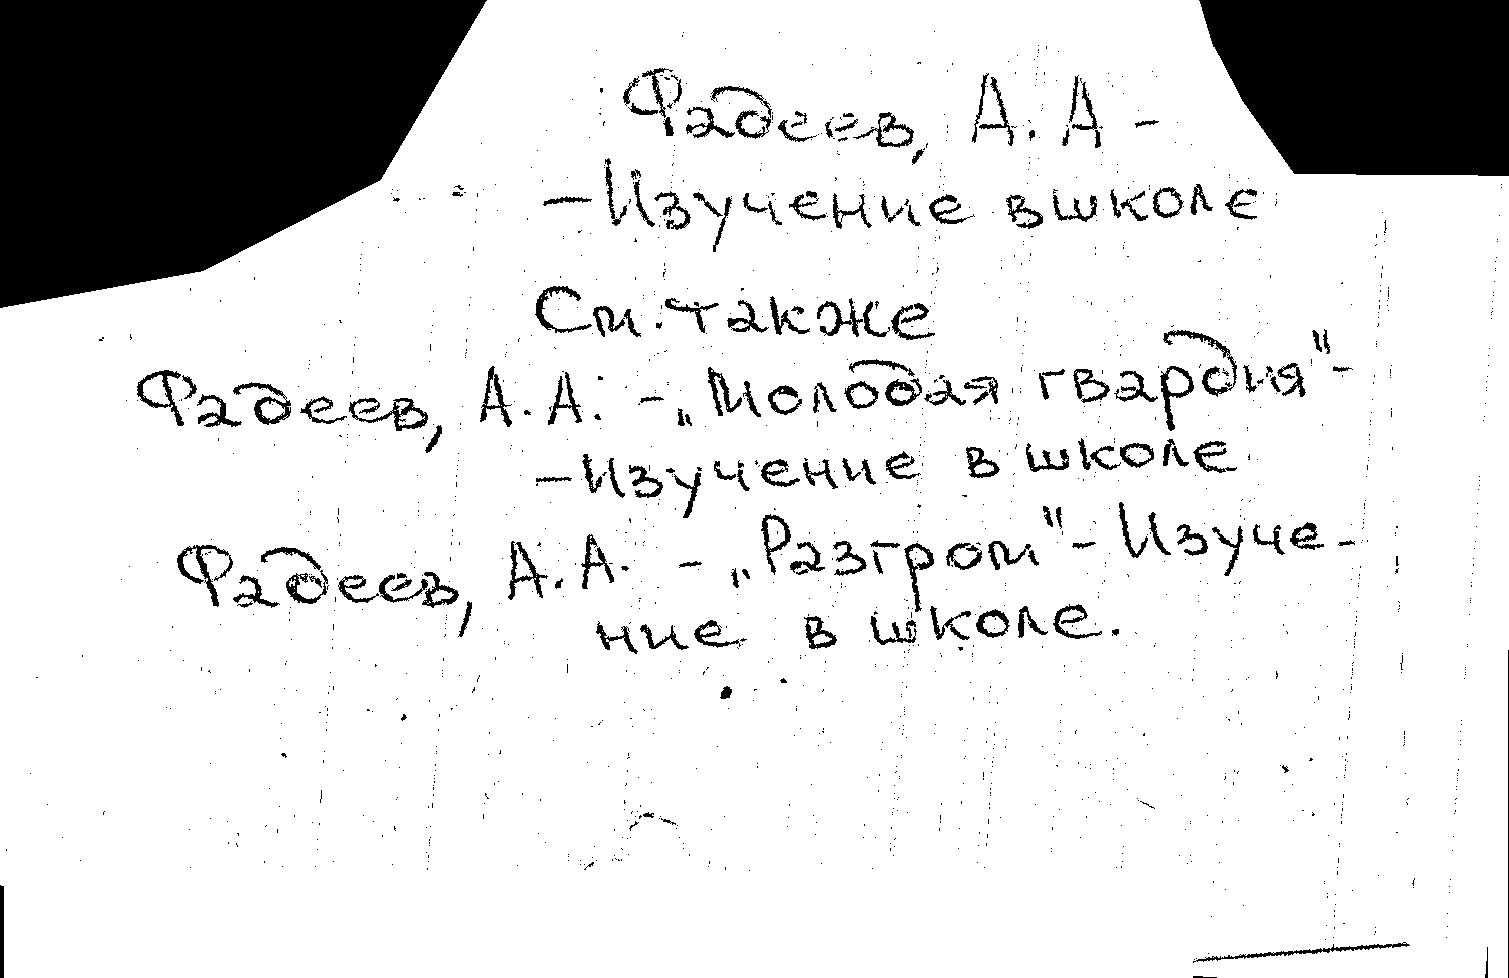 Фадеев, А. А -
- Изучение в школе
См. также
Фадеев, А. А. - „Молодая гвардия" -
- Изучение в школе
Фадеев, А. А. - „Разгром" - Изуче-
ние в школе.